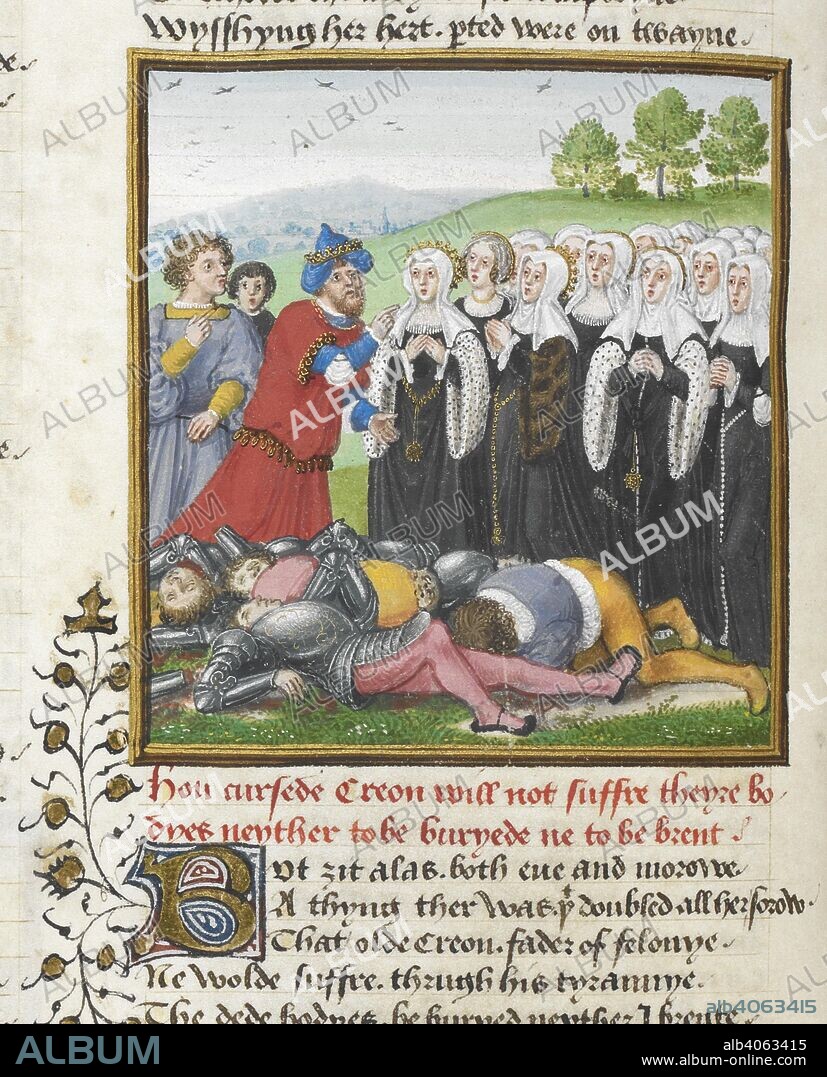 Wysshyng her hert. ꝑted were on twayne
Hou cursede Creon will not suffre theyre bo
dyes neyther to be buryede ne to be brent
But zit alas. both eue and morowe
A thyng ther was. þt doubled all her sorow
That olde Creon. fader of felonye
Ne wolde suffre. thrugh his tyrannye
The dede bodyes. be buryed neyther
alb4063415
ALBUM
alb4063415
www.album-online.com